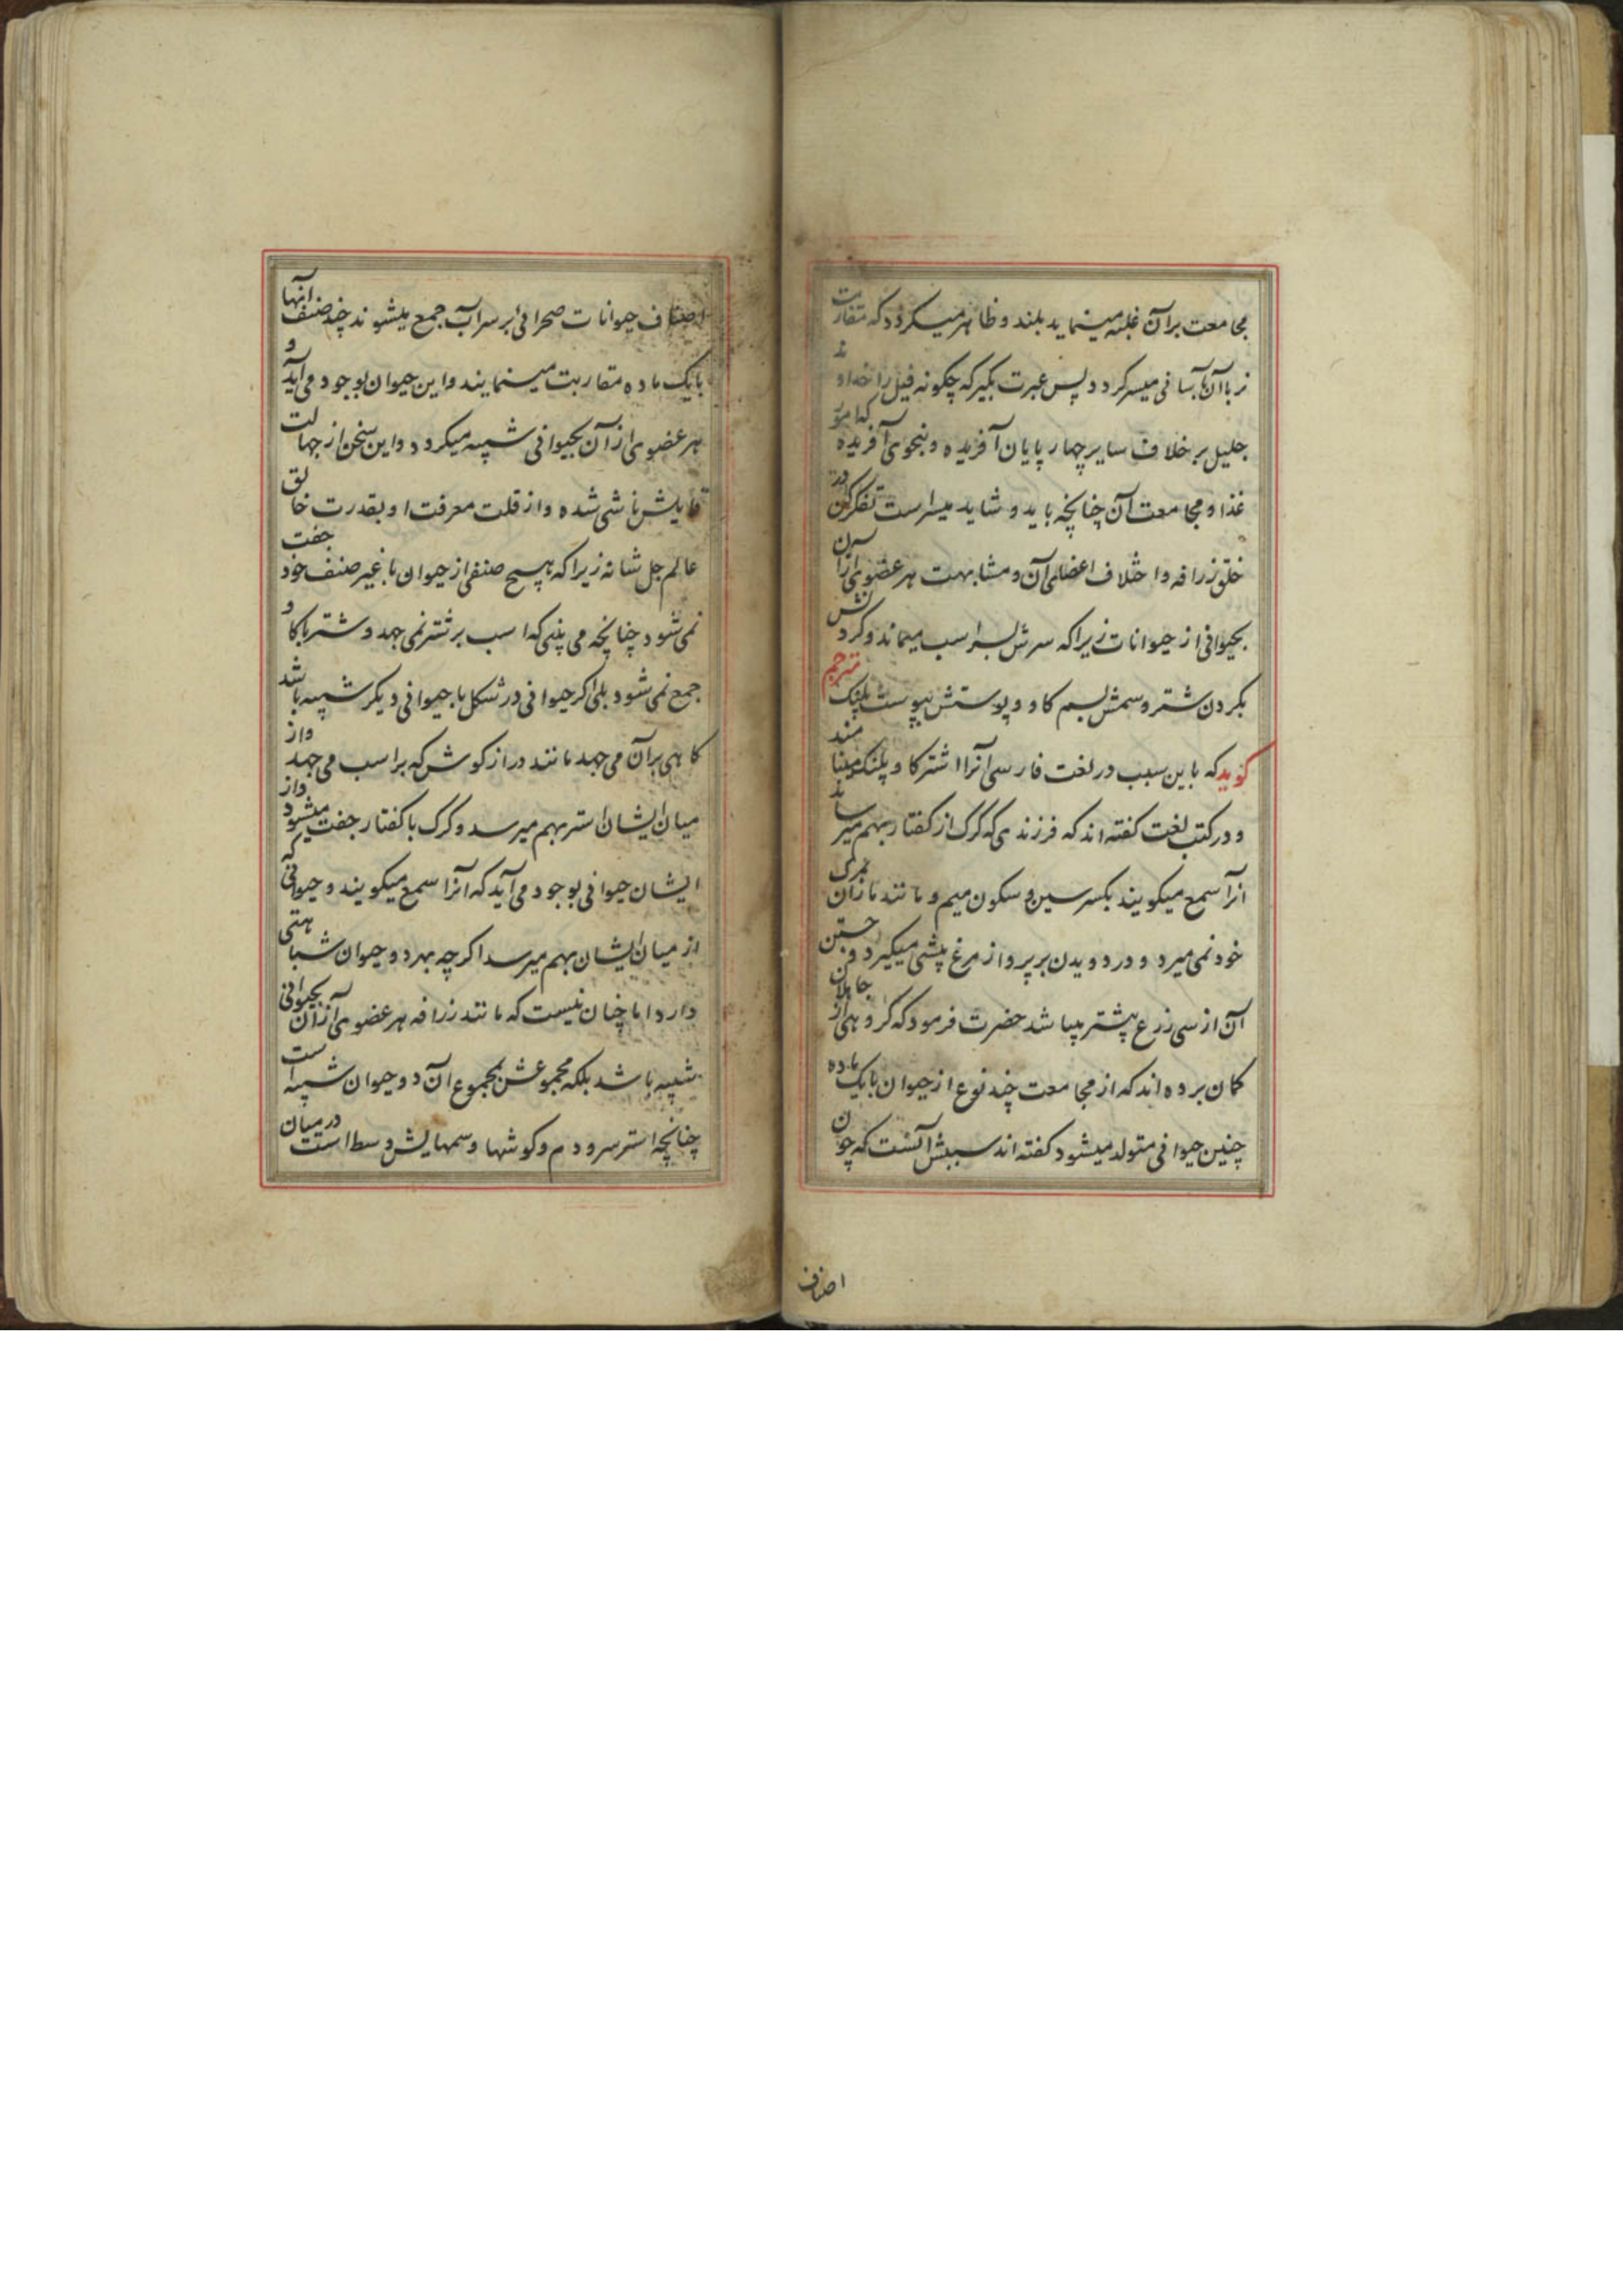 مجامعت بر آن غلبه مینماید بلند و ظاهر میکردد که مقاربت
نر با آن بآسانی میسر کردد پس عبرت بکیر که چکونه فیل را خداوند
جلیل بر خلاف سایر چهار پایان آفریده و بنحوی آفریده که امور
غذا و مجامعت آن چنانچه باید و شاید میسر است تفکر کن در
خلق زرافه و اختلاف اعضای آن و مشابهت هر عضوی از آن
بحیوانی از حیوانات زیرا که سرش بسر اسب میماند و کردنش
بکردن شتر و سمش بسم کاو و پوستش بپوست پلنک مترجم
کوید که باین سبب در لغت فارسی آنرا اشتر کاو پلنک مینامند
و در کتب لغت کفته اند که فرزندی که کرک از کفتار بهم میرساند
انرا سمع میکویند بکسر سین و سکون میم و مانند ماران بمرک
خود نمی میرد و در دویدن بر پرواز مرغ پیشی میکیرد و جستن
آن از سی زرع بیشتر میباشد حضرت فرمود که کروهی از جاهلان
کمان برده اند که از مجامعت چند نوع از حیوان با یک ماده
چنین حیوانی متولد میشود کفته اند سببش آنست که چون
اصناف
اصناف حیوانات صحرائی بر سر آب جمع میشوند چند صنف آنها
با یک ماده مقاربت مینمایند و این حیوان بوجود می آید و
هر عضوی از آن بحیوانی شبیه میکردد و این سخن از جهالت
قایلش ناشی شده و از قلت معرفت او بقدرت خالق
عالم جل شانه زیرا که هیچ صنفی از حیوان با غیر صنف خود جفت
نمی شود چنانچه می بینی که اسب بر شتر نمی جهد و شتر با کاو
جمع نمی شود بلی اکر حیوانی در شکل با حیوانی دیکر شبیه باشد
کاهی بر آن می جهد مانند دراز کوش که بر اسب می جهد و از
میان ایشان استر بهم میرسد و کرک با کفتار جفت میشود و از
ایشان حیوانی بوجود می آید که آنرا سمع میکویند و حیوانی که
از میان ایشان بهم میرسد اکر چه بهر دو حیوان شباهتی
دارد اما چنان نیست که مانند زرافه هر عضوی از آن بحیوانی
شبیه باشد بلکه مجموعش بمجموع ان دو حیوان شبیه است
چنانچه استر سر و دم و کوشها و سمهایش وسط است در میان